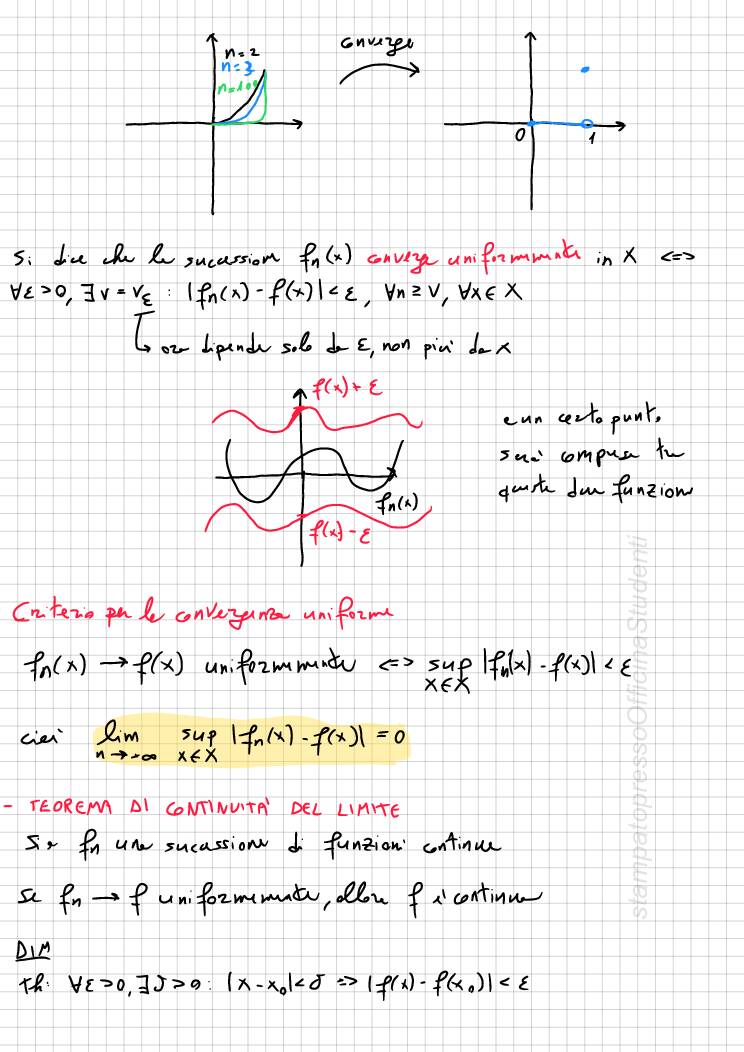 n=2
n=3
n=100
converge
0
1
Si dice che la successione fn(x) converge uniformemente in X <=>
∀ε>0, ∃ν=νε : |fn(x) - f(x)| < ε, ∀n≥ν, ∀x∈X
↳ ora dipende solo da ε, non più da x
f(x)+ε
fn(x)
f(x)-ε
a un certo punto
sarà compresa tra
queste due funzioni
Criterio per la convergenza uniforme
fn(x) → f(x) uniformemente <=> sup |fn(x) - f(x)| < ε
x∈X
cioè lim sup |fn(x) - f(x)| = 0
n→+∞ x∈X
- TEOREMA DI CONTINUITA' DEL LIMITE
Sia fn una successione di funzioni continue
se fn → f uniformemente, allora f è continua
DIM
th: ∀ε>0, ∃δ>0: |x-x₀|<δ => |f(x) - f(x₀)| < ε
stampatopressoOfficinaStudenti